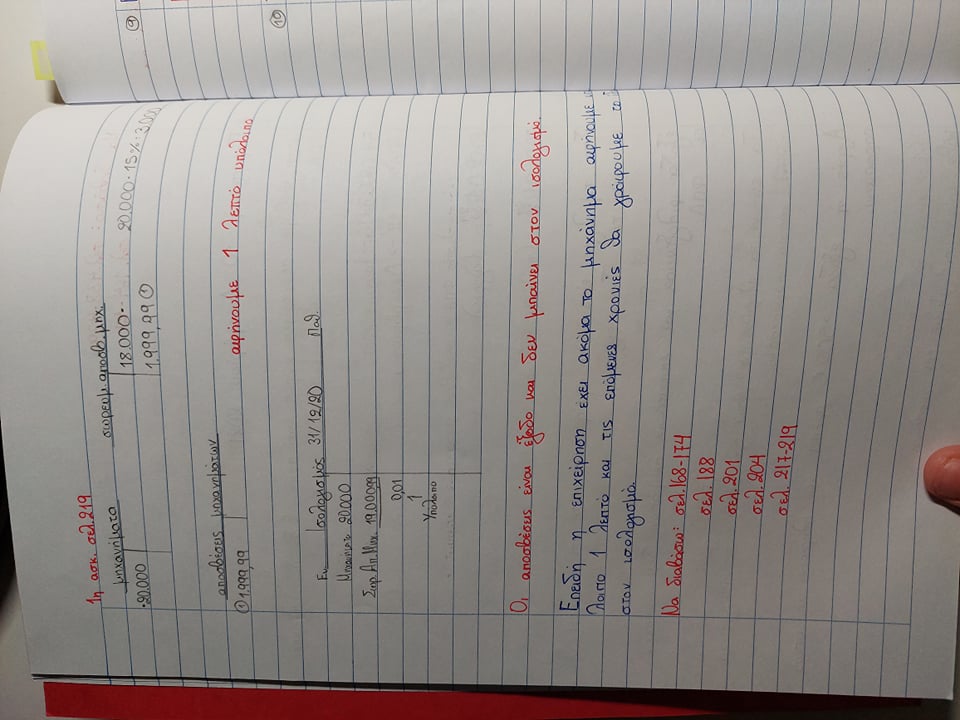 1η ασκ. σελ.219
μηχανήματα σωρευμ. αποσβ. μηχ.
20.000 18.000 20.000 · 15% = 3.000
1.999,99 ①
αποσβέσεις μηχανημάτων
① 1.999,99 αφήνουμε 1 λεπτό υπόλοιπο
Εν Ισολογισμός 31/12/20 Παθ.
Μηχανήματα 20.000
Σωρ. Απ. Μηχ. 19.000,99
0,01
Υπόλοιπο
Οι αποσβέσεις είναι έξοδο και δεν μπαίνει στον ισολογισμό.
Επειδή η επιχείρηση έχει ακόμα το μηχάνημα αφήνουμε
λοιπο 1 λεπτό και τις επόμενες χρονιές θα γράφουμε το
στον ισολογισμό.
Να διαβάσω: σελ.168-174
σελ. 188
σελ. 201
σελ. 204
σελ. 217-219
⑨
⑩